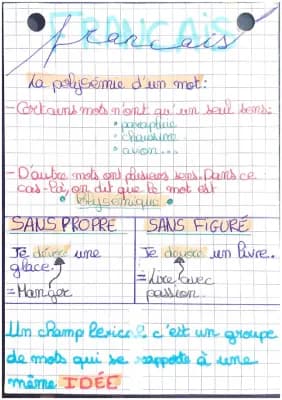 FRANÇAIS
français
La polysémie d'un mot:
- Certains mots n'ont qu'un seul sens:
• parapluie
• chaussure
• avion...
- D'autre mots ont plusieurs sens. Dans ce
cas-là, on dit que le mot est
• polysémique •
SANS PROPRE
Je dévore une
glace.
= Manger
SANS FIGURÉ
Je dévore un livre.
= Lire avec
passion.
Un champ lexical c'est un groupe
de mots qui se rapporte à une
même IDÉE